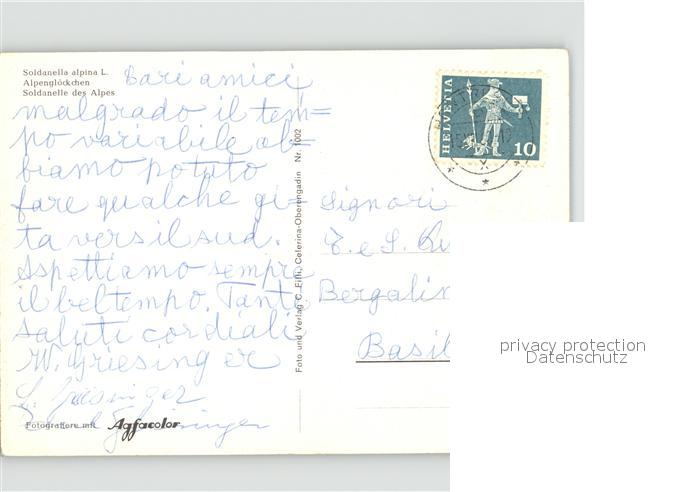 Soldanella alpina L.
Alpenglöckchen
Soldanelle des Alpes
Cari amici
malgrado il tem=
po variabile ab=
biamo potuto
fare qualche gi=
ta vers il sud.
Aspettiamo sempre
il beltempo. Tanti
saluti cordiali
W. Griesinger
Griesinger
Fotografiere mit Agfacolor
Foto und Verlag C. Filli, Celerina-Oberengadin Nr. 1002
HELVETIA
10
Signori
T. e S.
Bergalin
Basil
privacy protection
Datenschutz